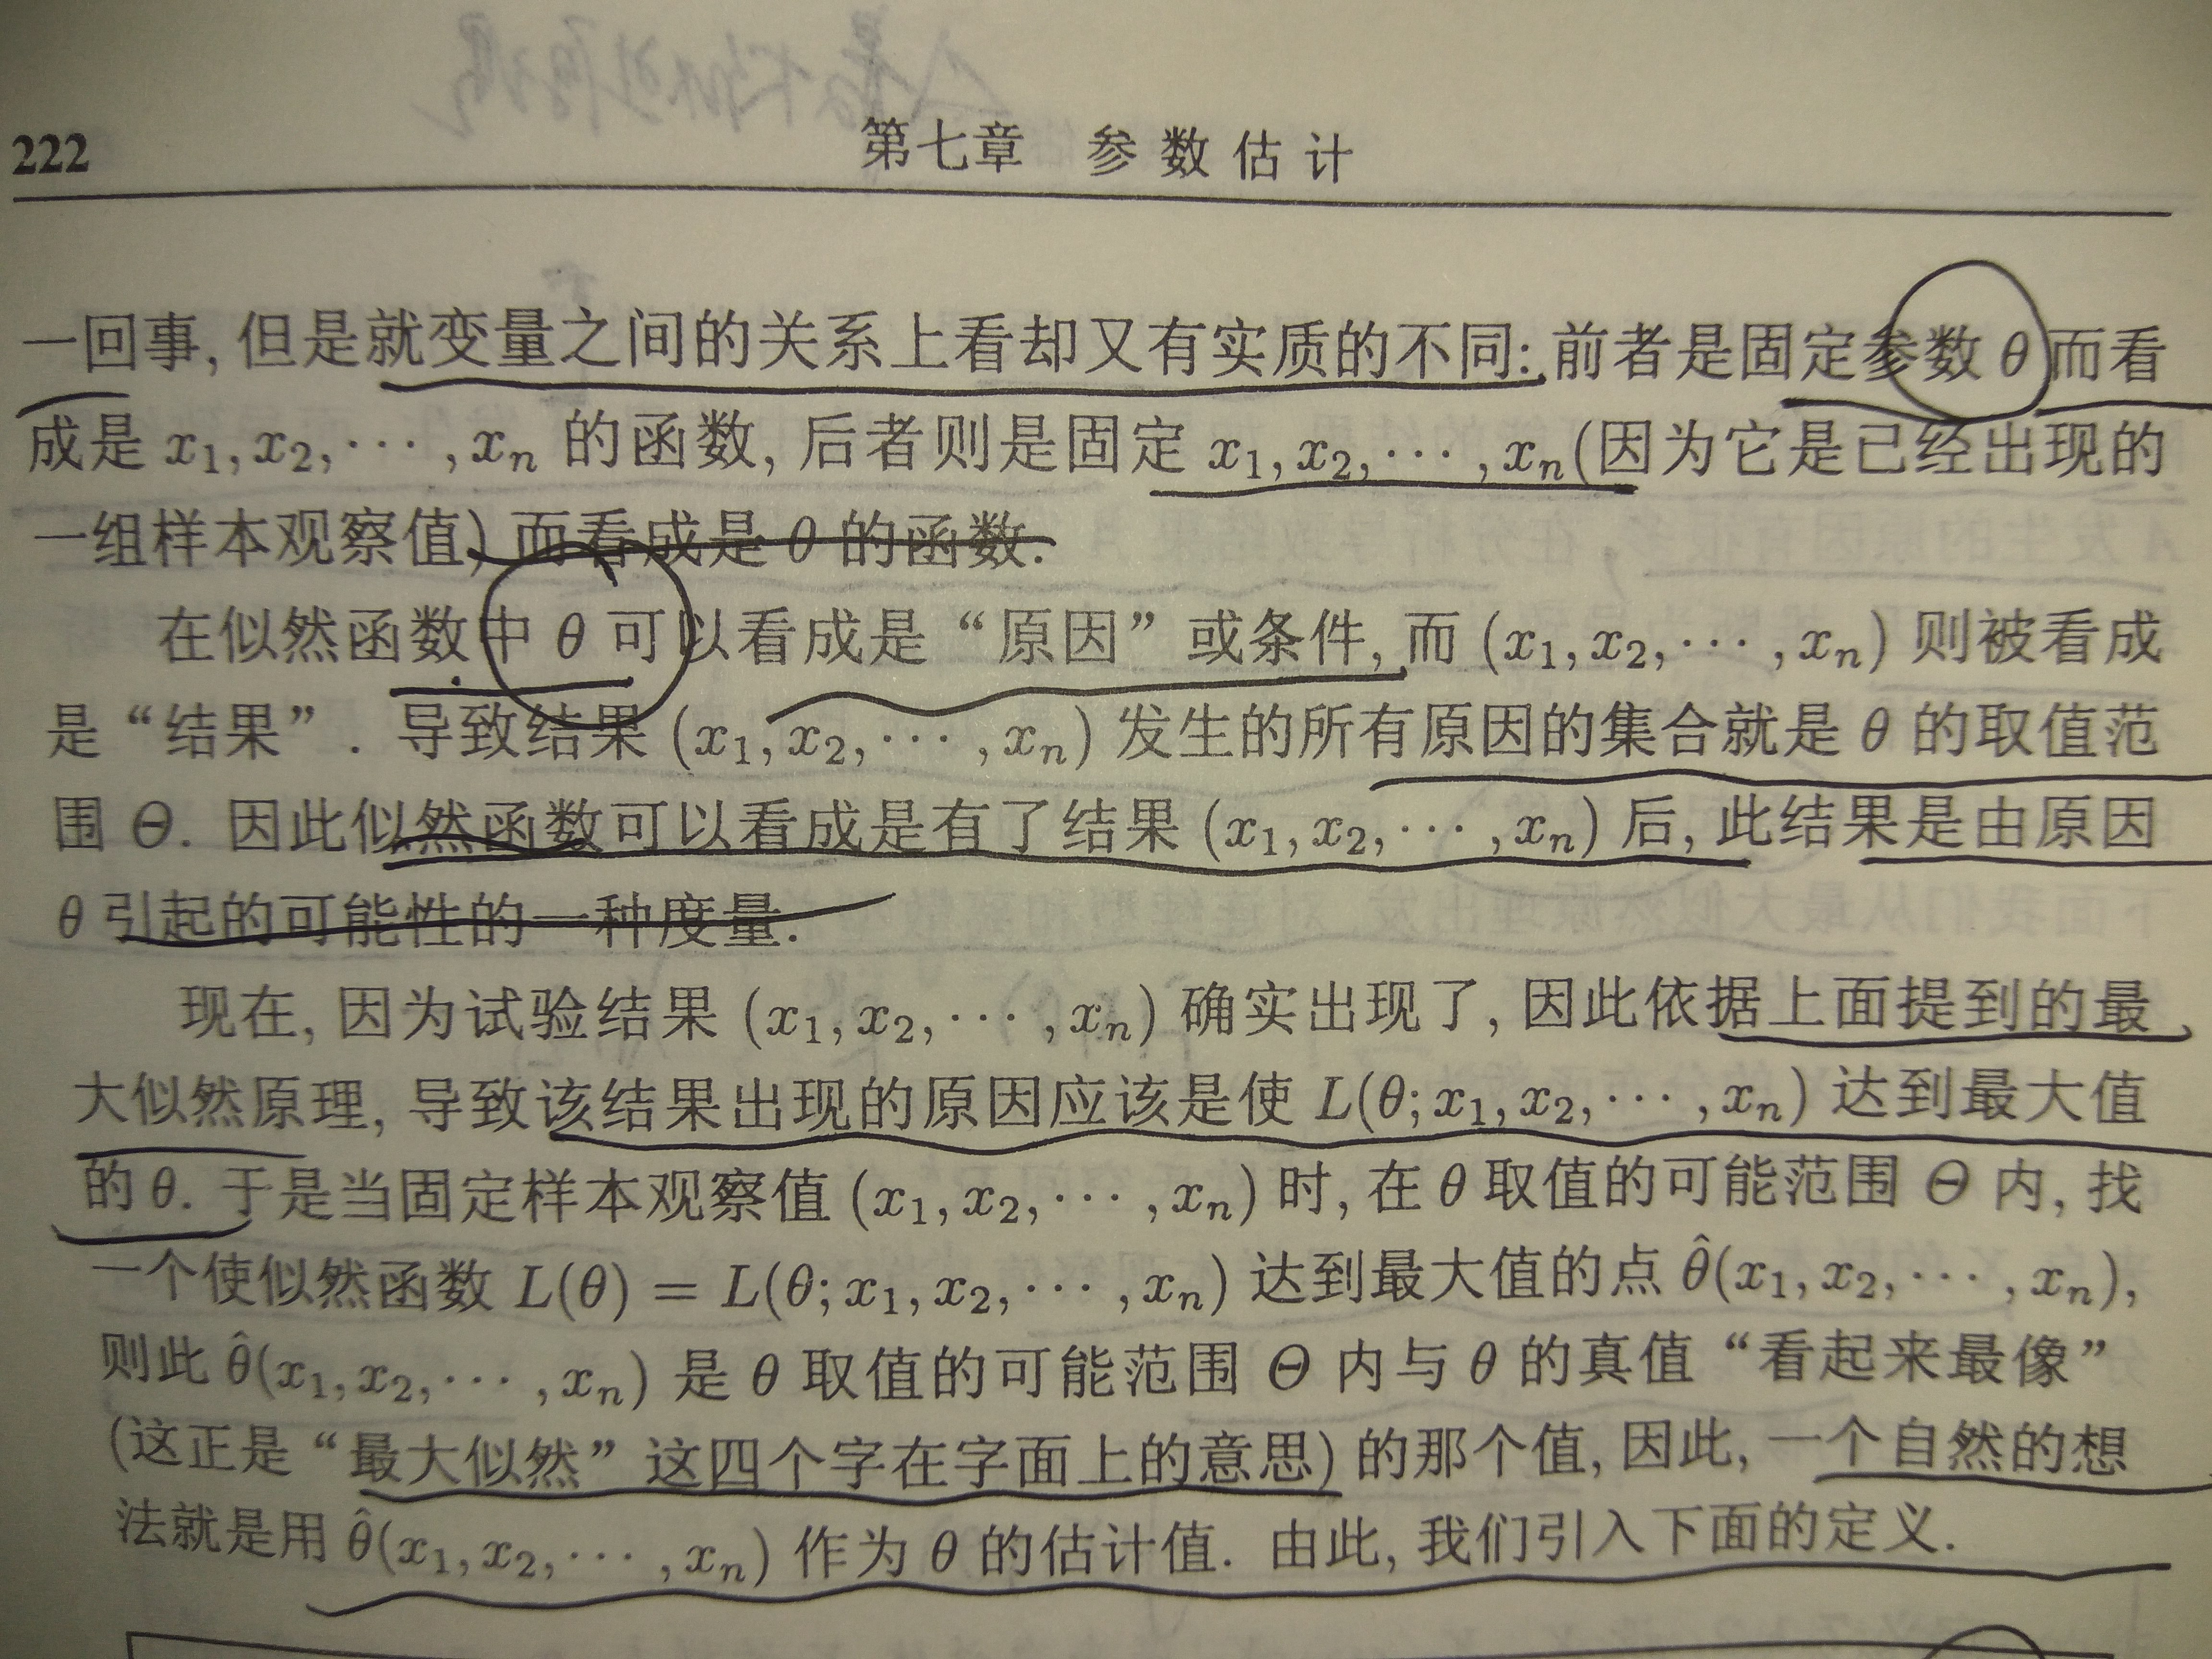 222
第七章 参数估计
一回事, 但是就变量之间的关系上看却又有实质的不同: 前者是固定参数 θ 而看
成是 x₁, x₂, ⋯ , xₙ 的函数, 后者则是固定 x₁, x₂, ⋯ , xₙ(因为它是已经出现的
一组样本观察值) 而看成是 θ 的函数.
在似然函数中 θ 可以看成是 “原因” 或条件, 而 (x₁, x₂, ⋯ , xₙ) 则被看成
是 “结果” . 导致结果 (x₁, x₂, ⋯ , xₙ) 发生的所有原因的集合就是 θ 的取值范
围 Θ. 因此似然函数可以看成是有了结果 (x₁, x₂, ⋯ , xₙ) 后, 此结果是由原因
θ 引起的可能性的一种度量.
现在, 因为试验结果 (x₁, x₂, ⋯ , xₙ) 确实出现了, 因此依据上面提到的最
大似然原理, 导致该结果出现的原因应该是使 L(θ; x₁, x₂, ⋯ , xₙ) 达到最大值
的 θ. 于是当固定样本观察值 (x₁, x₂, ⋯ , xₙ) 时, 在 θ 取值的可能范围 Θ 内, 找
一个使似然函数 L(θ) = L(θ; x₁, x₂, ⋯ , xₙ) 达到最大值的点 θ̂(x₁, x₂, ⋯ , xₙ),
则此 θ̂(x₁, x₂, ⋯ , xₙ) 是 θ 取值的可能范围 Θ 内与 θ 的真值 “看起来最像”
(这正是 “最大似然” 这四个字在字面上的意思) 的那个值, 因此, 一个自然的想
法就是用 θ̂(x₁, x₂, ⋯ , xₙ) 作为 θ 的估计值. 由此, 我们引入下面的定义.